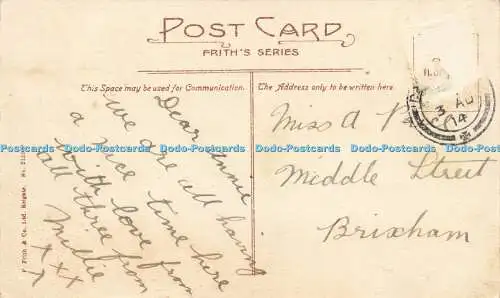 POST CARD
FRITH'S SERIES
This Space may be used for Communication.
The Address only to be written here.
Dear Annie
we are all having
a nice time here
with love from
all three from
Millie
x x x
x
Miss A
Middle Street
Brixham
3 AU
14
F. Frith & Co. Ltd. Reigate. No.
Postcards Postcards Postcards Postcards Postcards Postcards Postcards